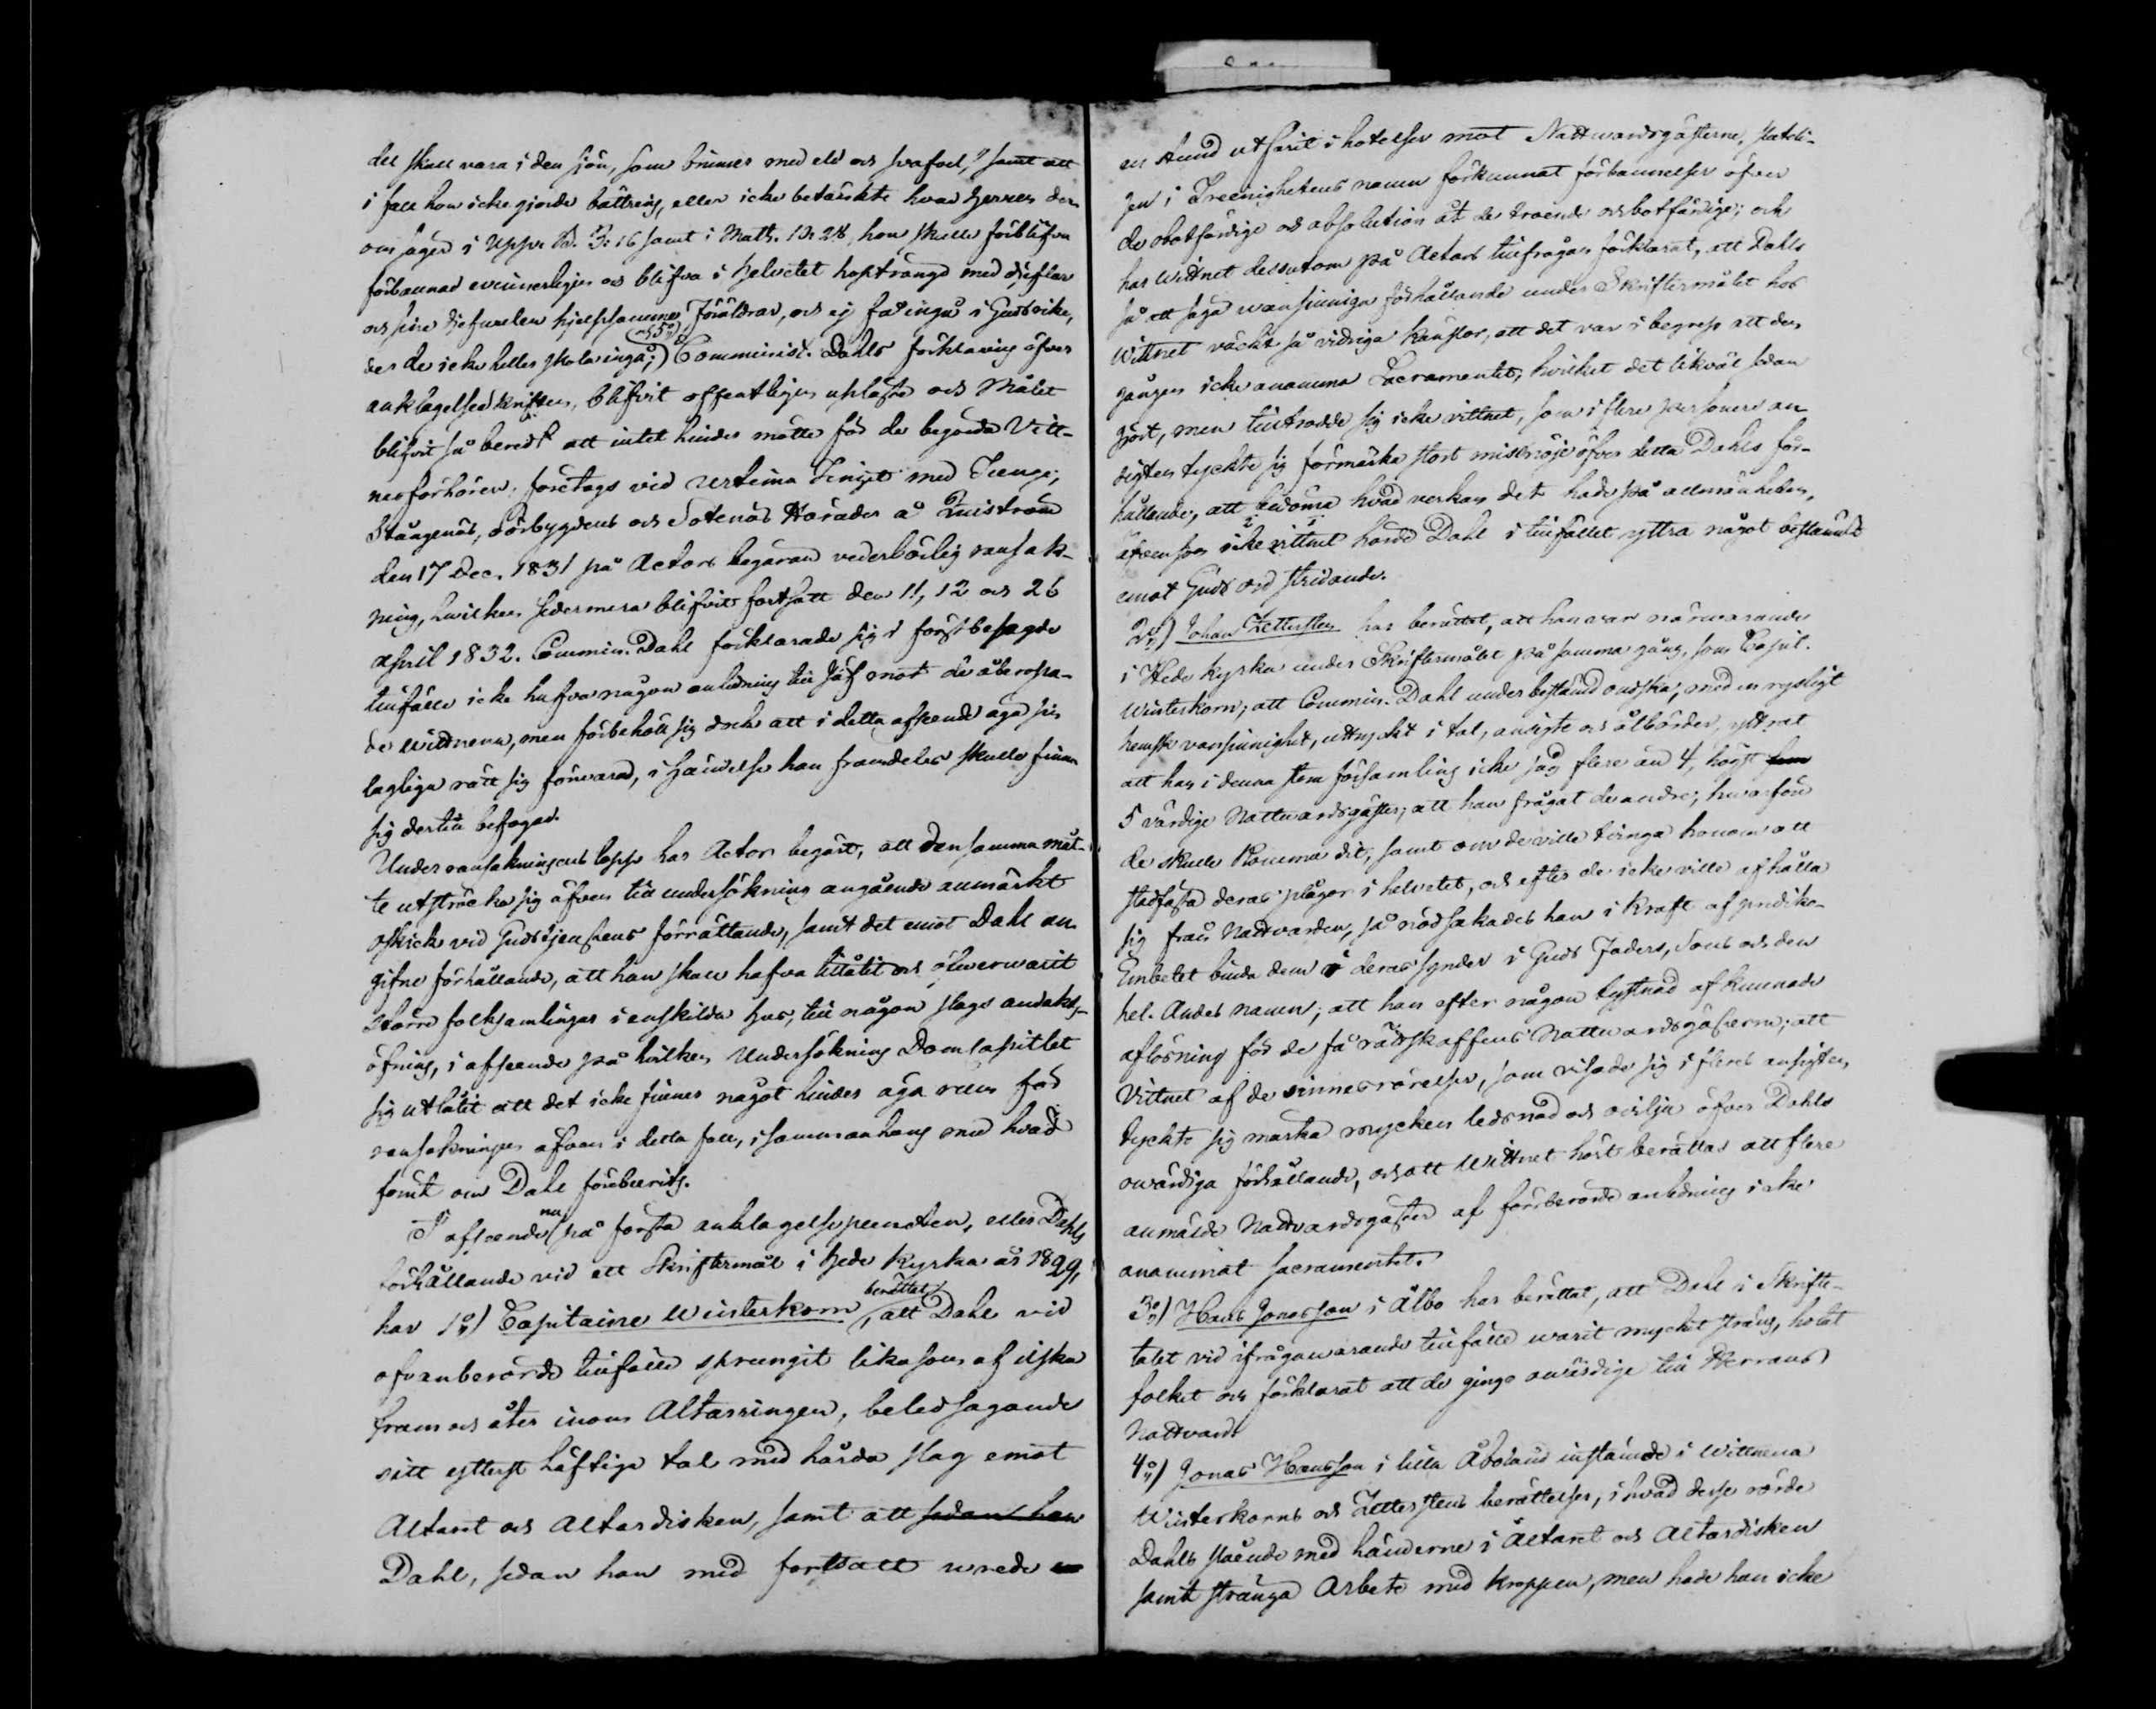 del skall vara i den sjön, som brinner med eld och svafvel," samt att
i fall hon icke gjorde bättring, eller icke betänkte hvad Herren der-
om säger i Uppb. B. 3: 16 samt i Math. 10: 28, hon skulle förblifva
förbannad evinnerligen och blifva i helvetet hopträngd med djeflar
och sine djefvulen hjelpsamme Föräldrar, och ej få ingå i Guds rike,
der de icke heller skola ingå; och 5o) Comminist. Dahls förklaring öfver
anklagelseskriften, blifvit offentligen upläste och Målet
blifvit så beredt att intet hinder mötte för de begärda Vitt-
nesförhören, företogs vid Urtima Tinget med Tunge,
Stångenäs, Sörbygdens och Sotenäs Härader å Quistrum
den 17 Dec. 1831 på Actors begäran vederbörlig ransak-
ning, hvilken sedermera blifvit fortsatt den 11, 12 och 26
April 1832. Commin. Dahl förklarade sig i förstbesagde
tillfälle icke hafva någon anledning till jäf mot de åberopa-
de wittnena, men förbehöll sig dock att i detta afseende äga sin
lagliga rätt sig förvarad, i händelse han framdeles skulle finna
sig dertill befogad.
Under ransakningens lopp har Actor begärt, att densamma måt-
te utsträcka sig äfven till undersökning angående anmärkt
oskick vid Gudstjenstens förrättande, samt det emot Dahl an-
gifne förhållande, att han skall hafva tillåtit och öfverwarit
större folksamlingar i enskilda hus, till någon slags andakts-
öfning, i afseende på hvilken Undersökning Domcapitlet
sig utlåtit att det icke finnes något hinder äga rum för
ransakningen äfven i detta fall, i sammanhang med hvad
förut om Dahl förebverits.
I afseende nu på första anklagelsepuncten, eller Dahls
förhållande vid ett Skriftermål i Hede Kyrka år 1829,
har 1o) Capitaine Winterkorn berättat, att Dahl vid
ofvanberörde tillfälle sprungit likasom af ilska
fram och åter inom Altarringen, beledsagande
sitt ytterst häftiga tal med hårda slag emot
Altaret och Altardisken, samt att sedan han
Dahl, sedan han med fortsatt wrede
en stund utfarit i hotelser mot Nattwardsgästerne, slutli-
gen i Treenighetens namn förkunnat förbannelser öfver
de obotfärdige och absolution åt de troende och botfärdige; och
har Wittnet dessutom på Actors tillfrågan förklarat, att Dahls
så att säga wansinniga förhållande under Skriftermålet hos
Wittnet väckt så vidriga känslor, att det var i begrep att den
gången icke anamma Sacramentet, hvilket det likväl sedan
gjort, men tilltrodde sig icke vittnet, som i flere personers an-
sigten tyckte sig förmärka stort missnöje öfver detta Dahls för-
hållande, att bedöma hvad verkan det hade på allmänheten,
äfvensom icke vittnet hörde Dahl i tillfället yttra något bestämdt
emot Guds ord stridande.
2o) Johan Zettersten har berättat, att han var närwarande
i Hede kyrka under Skriftermålet på samma gång, som Capit.
Winterkorn; att Commin. Dahl under bestånd ondska, med en rysligt
hemsk vansinnighet, uttryckt i tal, ansigte och åtbörder, yttrat
att han i denna stora församling icke såg flere än 4, högst fem
5 värdige Nattwardsgäster; att han frågat de andre, hwarföre
de skulle komma dit, samt om de ville tvinga honom att
stadfästa deras plågor i helvetet, och efter de icke ville afhålla
sig från Nattvarden, så nödsakades han i kraft af prediko-
Embetet binda dem i deras synder i Guds Faders, Sons och den
hel. Andes namn; att han efter någon tystnad afkunnade
aflösning för de få rättskaffens Nattwardsgästerne; att
Vittnet af de sinnesrörelser, som visade sig i fleres ansigten,
tyckte sig märka mycken ledsnad och ovilja öfver Dahls
owärdiga förhållande, och att Wittnet hört berättas att flere
anmälde Nattvardsgäster af förrberörde anledning icke
anammat sacramentet.
3o) Hans Jonasson i Ålbo har berättat, att Dahl i Skrifte-
talet vid ifrågawarande tillfälle warit mycket sträng, hotat
folket och förklarat att de gingo owärdige till Herrans
Nattvard
4o) Jonas Hansson i lilla Åboland instämde i Wittnena
Winterkorns och Zetterstens berättelser, i hvad desse rörde
Dahls slående med händerne i Altaret och Altardisken
samt stränga Arbete med kroppen, men hade han icke